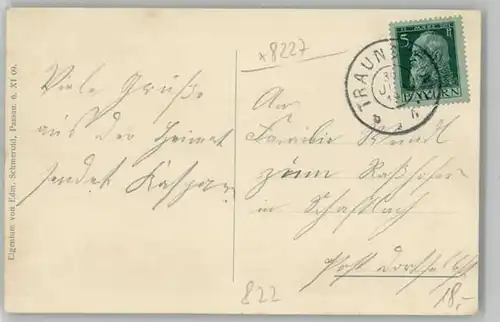 x 8227
Viele Grüße
aus der Heimat
sendet Kaspar
An
Familie
zum
in Schaftlach
Post
822
18,-
5
BAYERN
TRAUN
Eigentum von Edm. Schmerold, Passau. 6. XI 09.